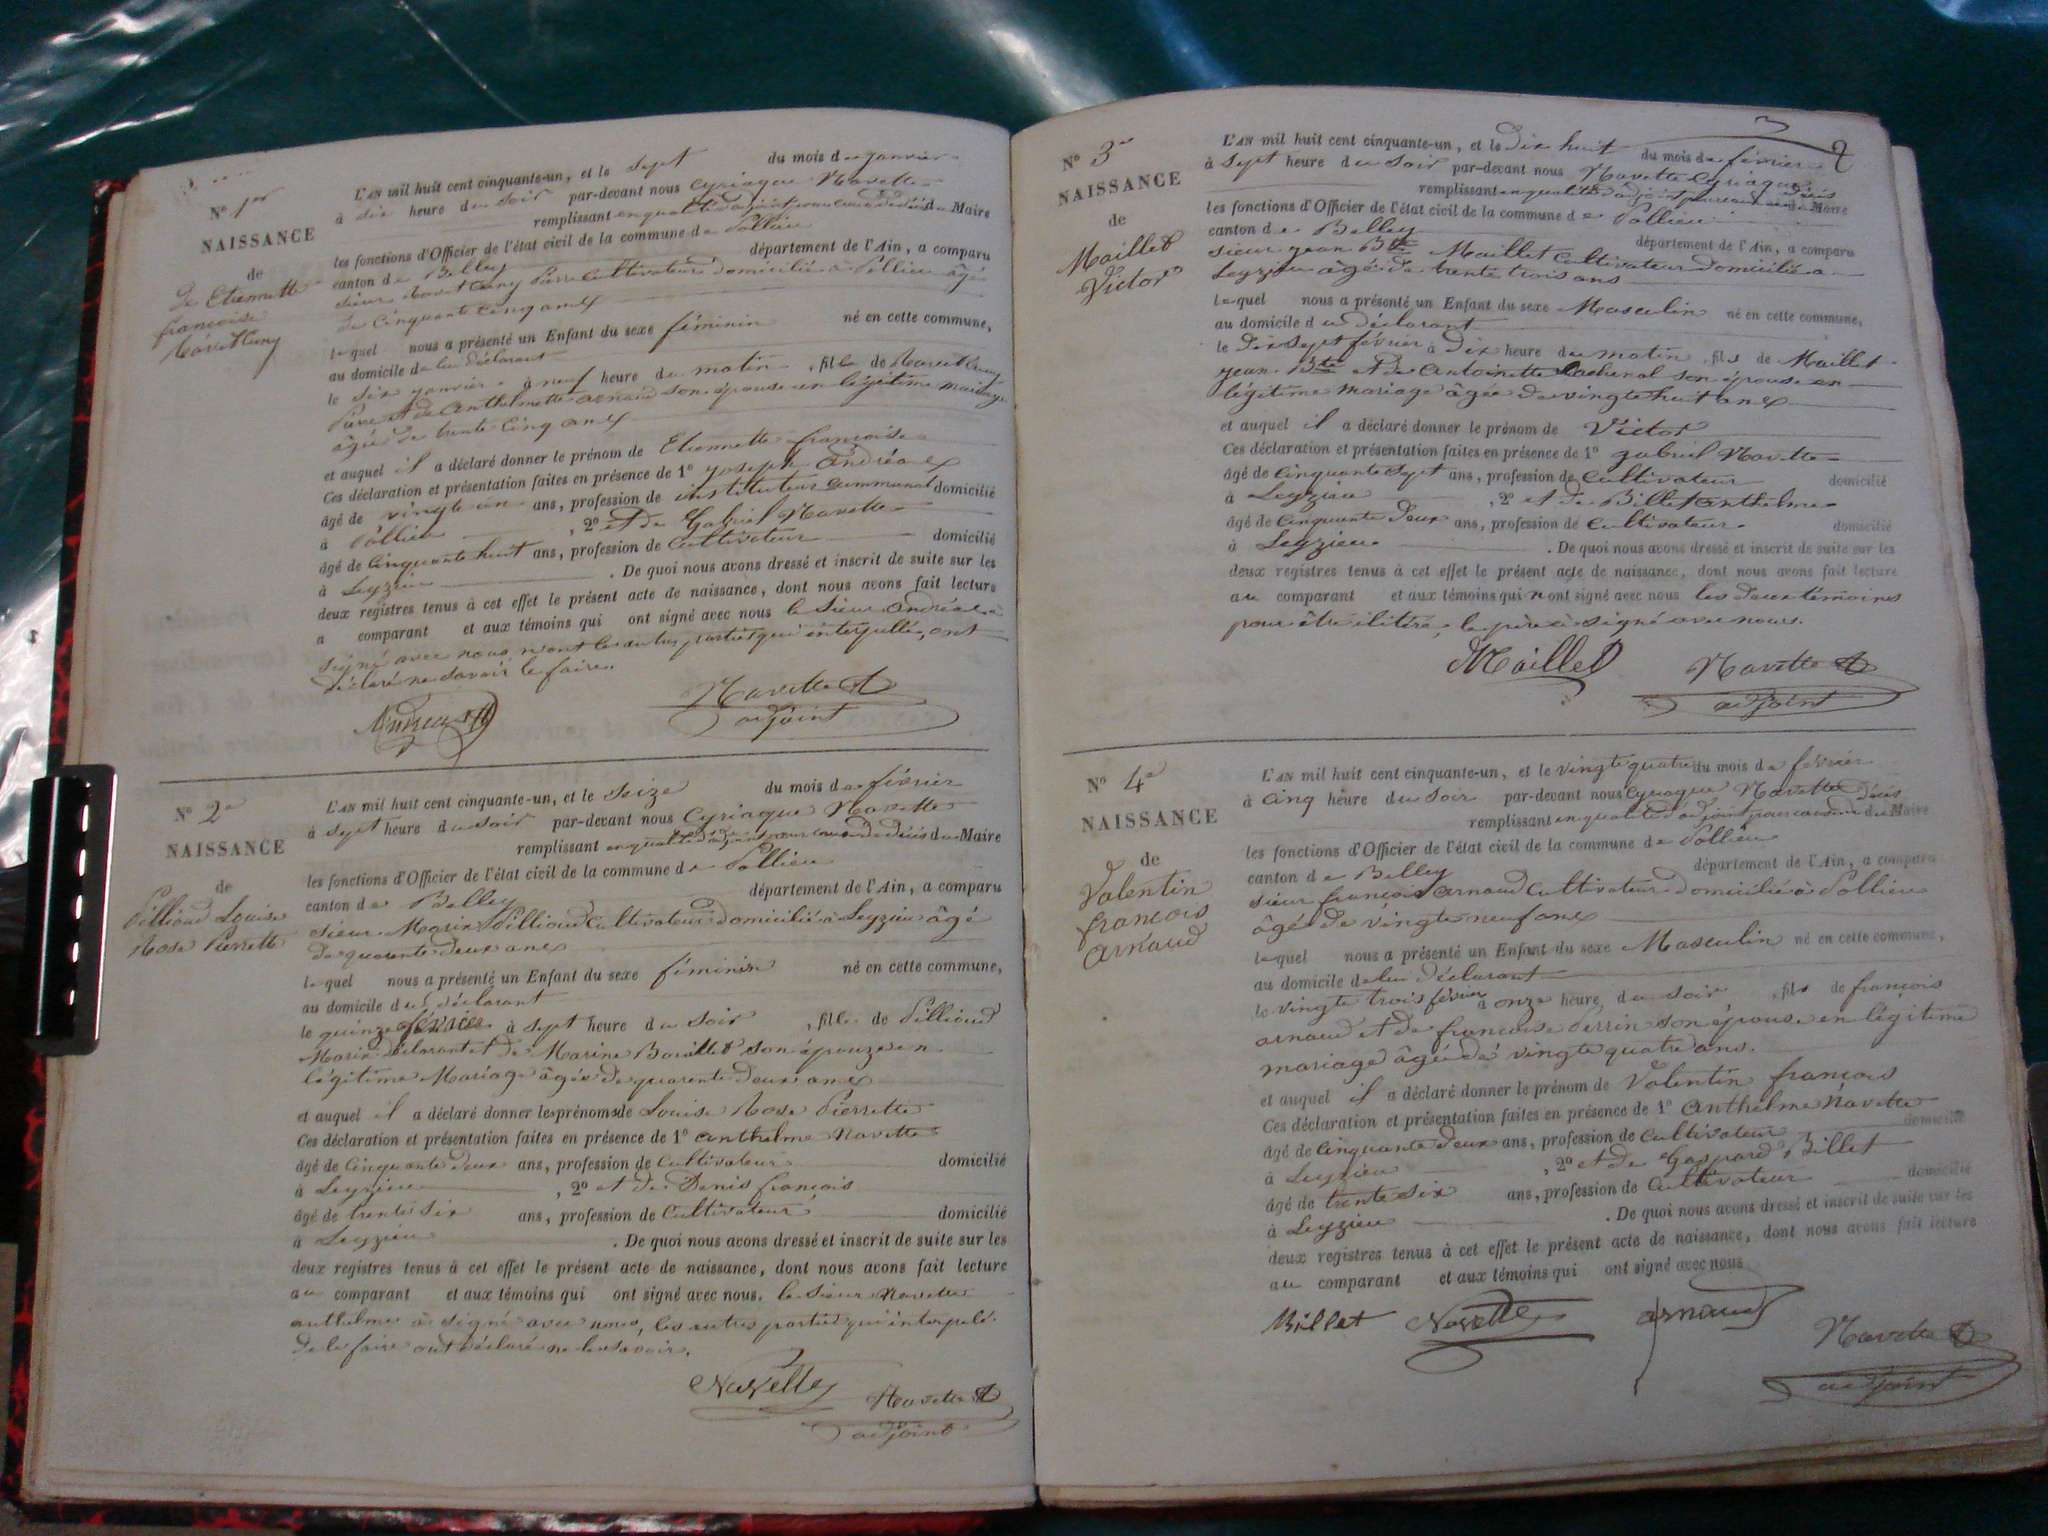 N° 1er
NAISSANCE
de
Etiennette
françoise
L'AN mil huit cent cinquante-un, et le sept du mois de janvier
à dix heure du soir par-devant nous Cyriaque Navette
remplissant en qualité d'adjoint pour cause de décès du Maire
les fonctions d'Officier de l'état civil de la commune de Pollieu
canton de Belley département de l'Ain, a comparu
sieur Pierre Cultivateur domicilié à Pollieu âgé
de cinquante cinq ans
lequel nous a présenté un Enfant du sexe féminin né en cette commune,
au domicile de lui déclarant
le six janvier à neuf heure du matin, fille de
Pierre et de Anthelmette arnaud son épouse en légitime mariage
âgée de trente cinq ans
et auquel il a déclaré donner le prénom de Etiennette françoise
Ces déclaration et présentation faites en présence de 1° joseph andréa
âgé de vingte un ans, profession de instituteur communal domicilié
à Pollieu, 2° et de Gabriel Navette
âgé de cinquante huit ans, profession de Cultivateur domicilié
à Leyzieu. De quoi nous avons dressé et inscrit de suite sur les
deux registres tenus à cet effet le présent acte de naissance, dont nous avons fait lecture
a comparant et aux témoins qui ont signé avec nous le sieur andréa
signé avec nous non les autres parties qui interpellé, ont
déclaré ne savoir le faire.
Navette
adjoint
N° 2e
NAISSANCE
de
Pillioud Louise
Rose Pierrette
L'AN mil huit cent cinquante-un, et le seize du mois de février
à sept heure du soir par-devant nous Cyriaque Navette
remplissant en qualité d'adjoint pour cause de décès du Maire
les fonctions d'Officier de l'état civil de la commune de Pollieu
canton de Belley département de l'Ain, a comparu
sieur Marin Pillioud Cultivateur domicilié à Leyzieu âgé
de quarente deux ans
lequel nous a présenté un Enfant du sexe féminin né en cette commune,
au domicile du déclarant
le quinze février à sept heure du soir, fille de Pillioud
Marin déclarant et de Marine son épouze en
légitime Mariage âgée de quarente deux ans
et auquel il a déclaré donner les prénoms de Louise Rose Pierrette
Ces déclaration et présentation faites en présence de 1° anthelme Navette
âgé de Cinquante deux ans, profession de Cultivateur domicilié
à Leyzieu, 2° et de Denis françois
âgé de trente six ans, profession de Cultivateur domicilié
à Leyzieu. De quoi nous avons dressé et inscrit de suite sur les
deux registres tenus à cet effet le présent acte de naissance, dont nous avons fait lecture
au comparant et aux témoins qui ont signé avec nous. le sieur Navette
anthelme a signé avec nous, les autres parties qui interpelé
de le faire ont déclaré ne le savoir.
Navette Navette
adjoint
2
N° 3e
NAISSANCE
de
Maillet
Victor
L'AN mil huit cent cinquante-un, et le dix huit du mois de février
à sept heure du soir par-devant nous Navette Cyriaque
remplissant en qualité d'adjoint pour cause de décès du Maire
les fonctions d'Officier de l'état civil de la commune de Pollieu
canton de Belley département de l'Ain, a comparu
sieur jean Bte Maillet Cultivateur domicilié a
Leyzieu âgé de trente trois ans
lequel nous a présenté un Enfant du sexe Masculin né en cette commune,
au domicile du déclarant
le dix sept février à dix heure du matin, fils de Maillet
jean Bte et de Antoinette Lachenal son épouse en
légitime mariage âgée de vingte huit ans
et auquel il a déclaré donner le prénom de Victor
Ces déclaration et présentation faites en présence de 1° gabriel Navette
âgé de Cinquante sept ans, profession de Cultivateur domicilié
à Leyzieu, 2° et de Billet anthelme
âgé de Cinquante deux ans, profession de Cultivateur domicilié
à Leyzieu. De quoi nous avons dressé et inscrit de suite sur les
deux registres tenus à cet effet le présent acte de naissance, dont nous avons fait lecture
au comparant et aux témoins qui n ont signé avec nous les deux témoins
pour être ilitéré, le père a signé avec nous.
Maillet Navette
adjoint
N° 4e
NAISSANCE
de
Valentin
françois
arnaud
L'AN mil huit cent cinquante-un, et le vingte quatre du mois de février
à cinq heure du soir par-devant nous Cyriaque Navette
remplissant en qualité d'adjoint pour cause de décès du Maire
les fonctions d'Officier de l'état civil de la commune de Pollieu
canton de Belley département de l'Ain, a comparu
sieur françois arnaud Cultivateur domicilié à Pollieu
âgé de vingte neuf ans
lequel nous a présenté un Enfant du sexe Masculin né en cette commune,
au domicile de lui déclarant
le vingte trois février à onze heure du soir, fils de françois
arnaud et de françoise Perrin son épouse en légitime
mariage âgée de vingte quatre ans.
et auquel il a déclaré donner le prénom de Valentin françois
Ces déclaration et présentation faites en présence de 1° anthelme Navette
âgé de Cinquante deux ans, profession de Cultivateur domicilié
à Leyzieu, 2° et de Gaspard Billet
âgé de trente six ans, profession de Cultivateur domicilié
à Leyzieu. De quoi nous avons dressé et inscrit de suite sur les
deux registres tenus à cet effet le présent acte de naissance, dont nous avons fait lecture
au comparant et aux témoins qui ont signé avec nous
Billet Navette arnaud
Navette
adjoint